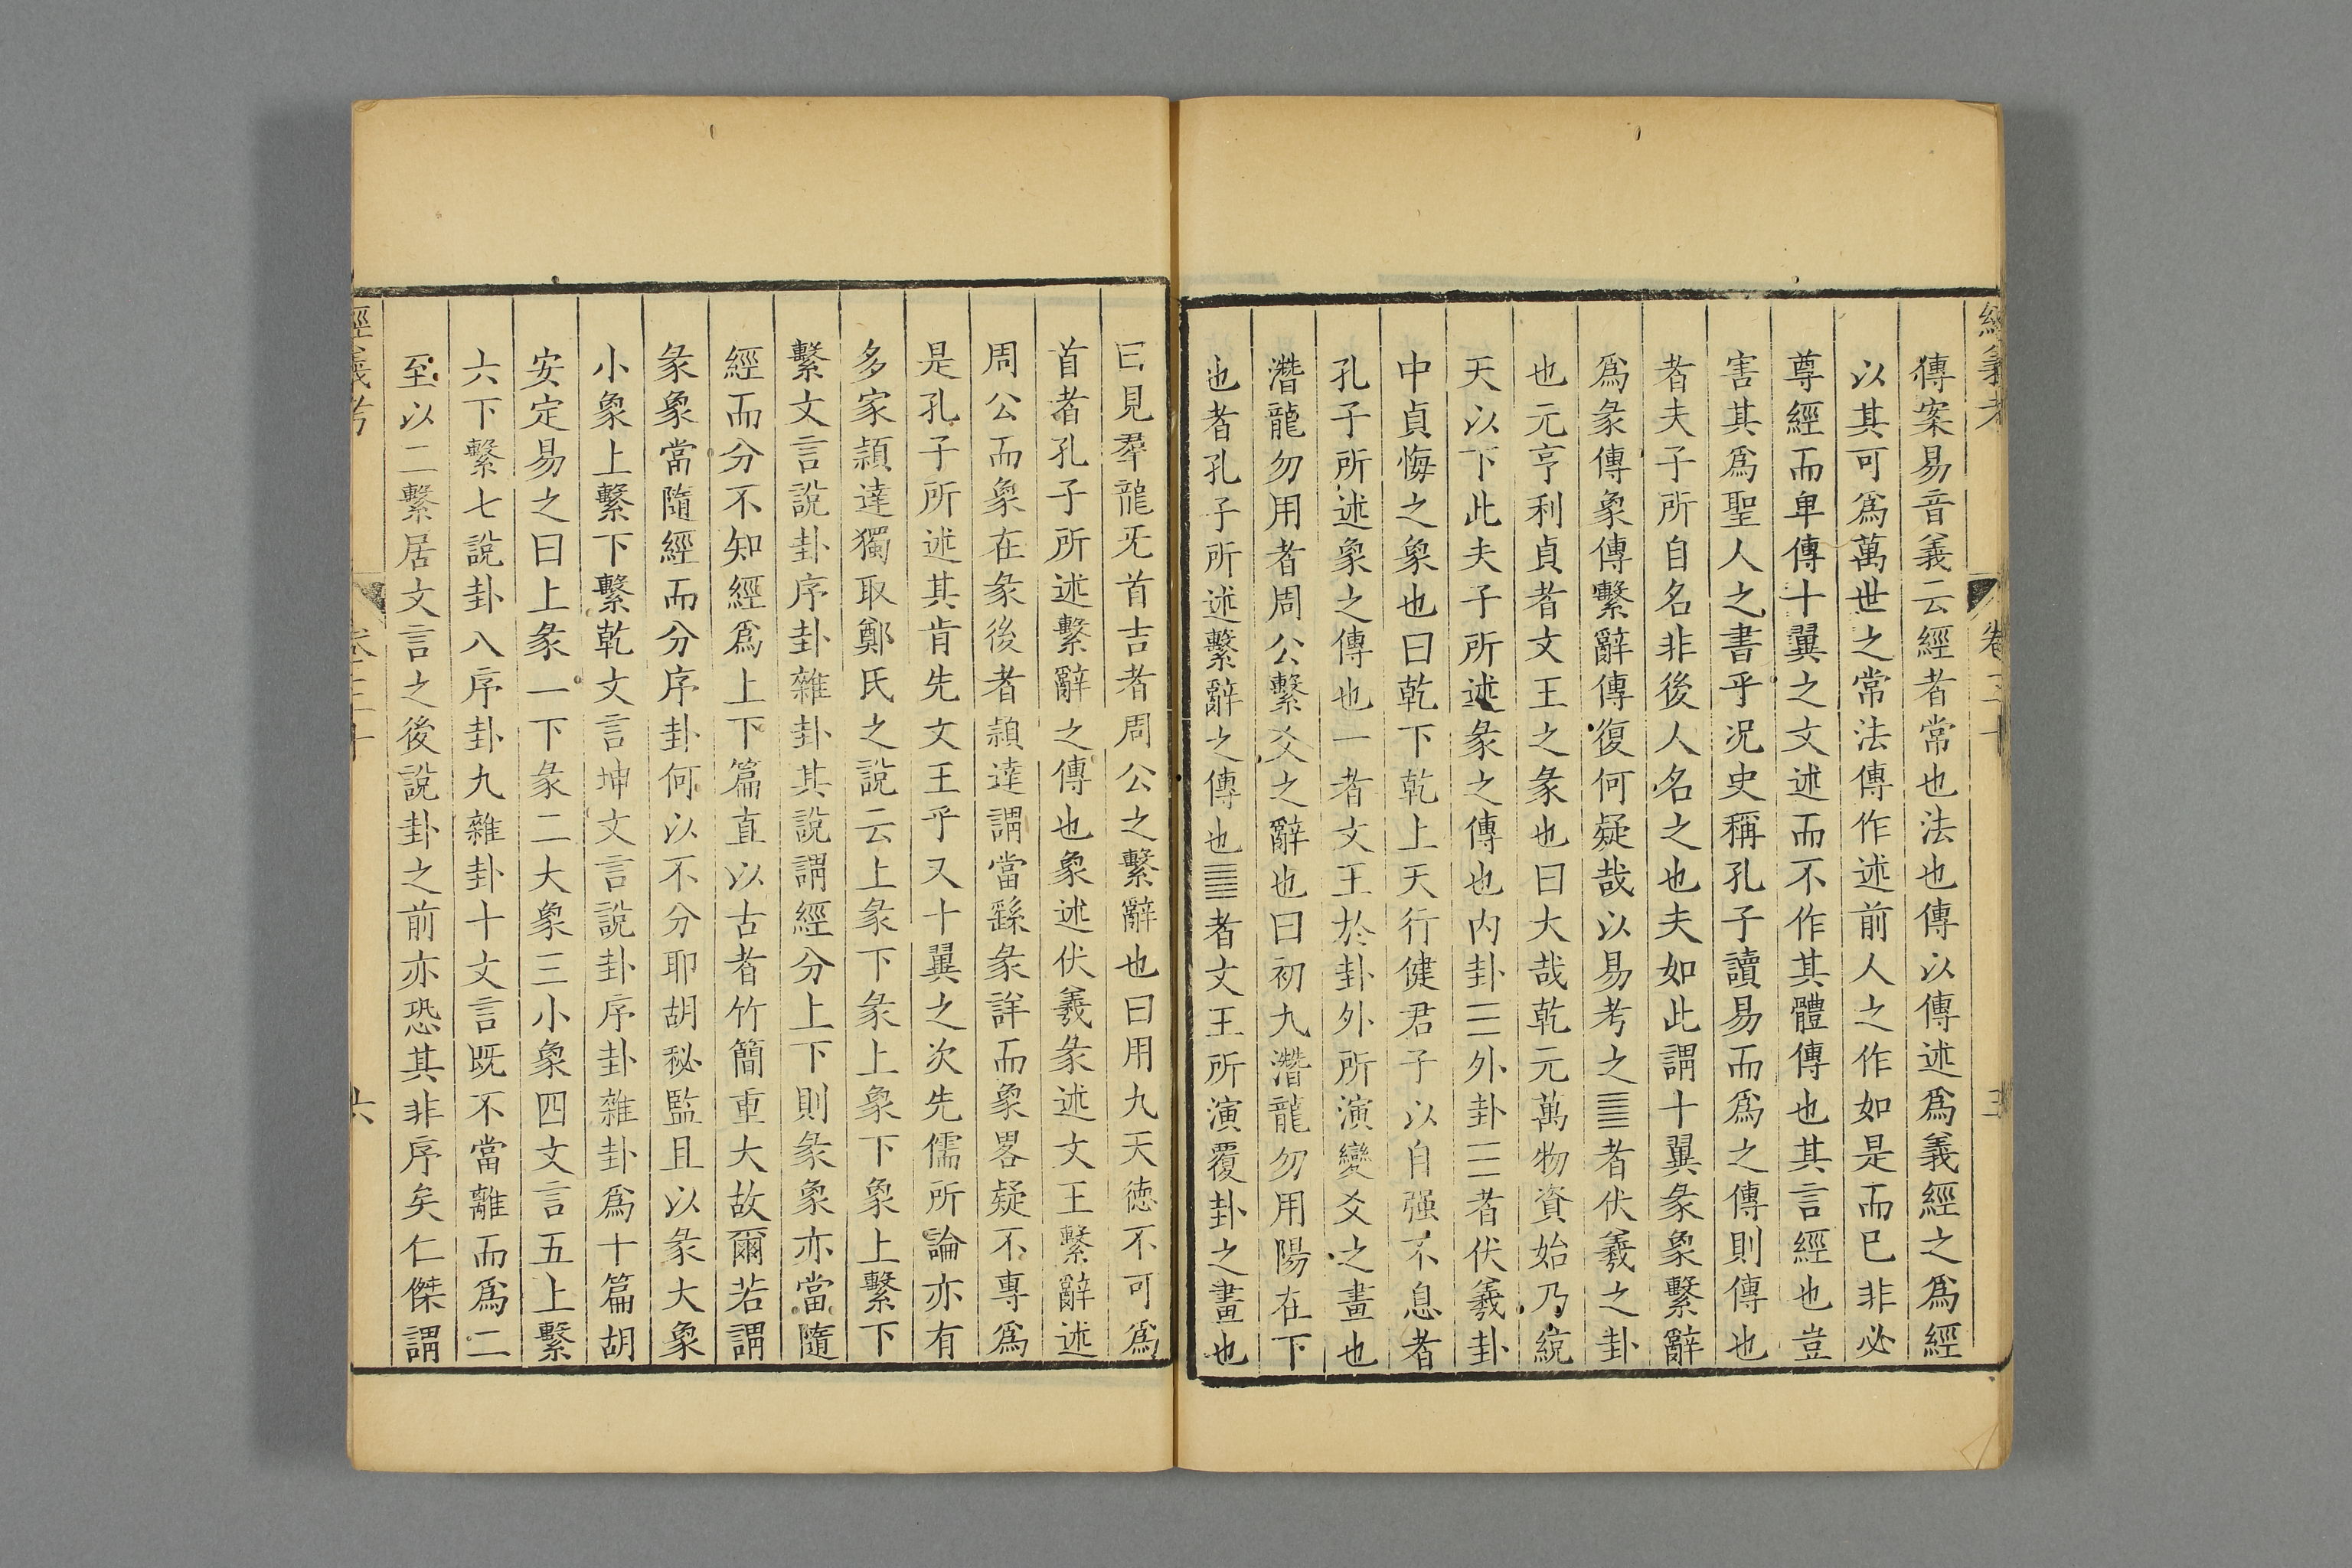 傳案易音義云經者常也法也傳以傳述爲義經之爲經
以其可爲萬世之常法傳作述前人之作如是而已非必
尊經而卑傳十翼之文述而不作其體傳也其言經也豈
害其爲聖人之書乎况史稱孔子讀易而爲之傳則傳也
者夫子所自名非後人名之也夫如此謂十翼彖象繫辭
爲彖傳象傳繫辭傳復何疑哉以易考之䷀者伏羲之卦
也元亨利貞者文王之彖也曰大哉乾元萬物資始乃統
天以下此夫子所述彖之傳也内卦☰外卦☰者伏羲卦
中貞悔之象也曰乾下乾上天行健君子以自强不息者
孔子所述象之傳也一者文王於卦外所演變爻之畫也
潛龍勿用者周公繫爻之辭也曰初九潛龍勿用陽在下
也者孔子所述繫辭之傳也䷀者文王所演覆卦之畫也
曰見羣龍旡首吉者周公之繫辭也曰用九天德不可爲
首者孔子所述繫辭之傳也象述伏羲彖述文王繫辭述
周公而象在彖後者頴達謂當繇彖詳而象畧疑不專爲
是孔子所述其肯先文王乎又十翼之次先儒所論亦有
多家頴達獨取鄭氏之說云上彖下彖上象下象上繫下
繫文言說卦序卦雜卦其說謂經分上下則彖象亦當隨
經而分不知經爲上下篇直以古者竹簡重大故爾若謂
彖象當隨經而分序卦何以不分耶胡秘監且以彖大象
小象上繫下繫乾文言坤文言說卦序卦雜卦爲十篇胡
安定易之曰上彖一下彖二大象三小象四文言五上繫
六下繫七說卦八序卦九雜卦十文言既不當離而爲二
至以二繫居文言之後說卦之前亦恐其非序矣仁傑謂
經義考
六